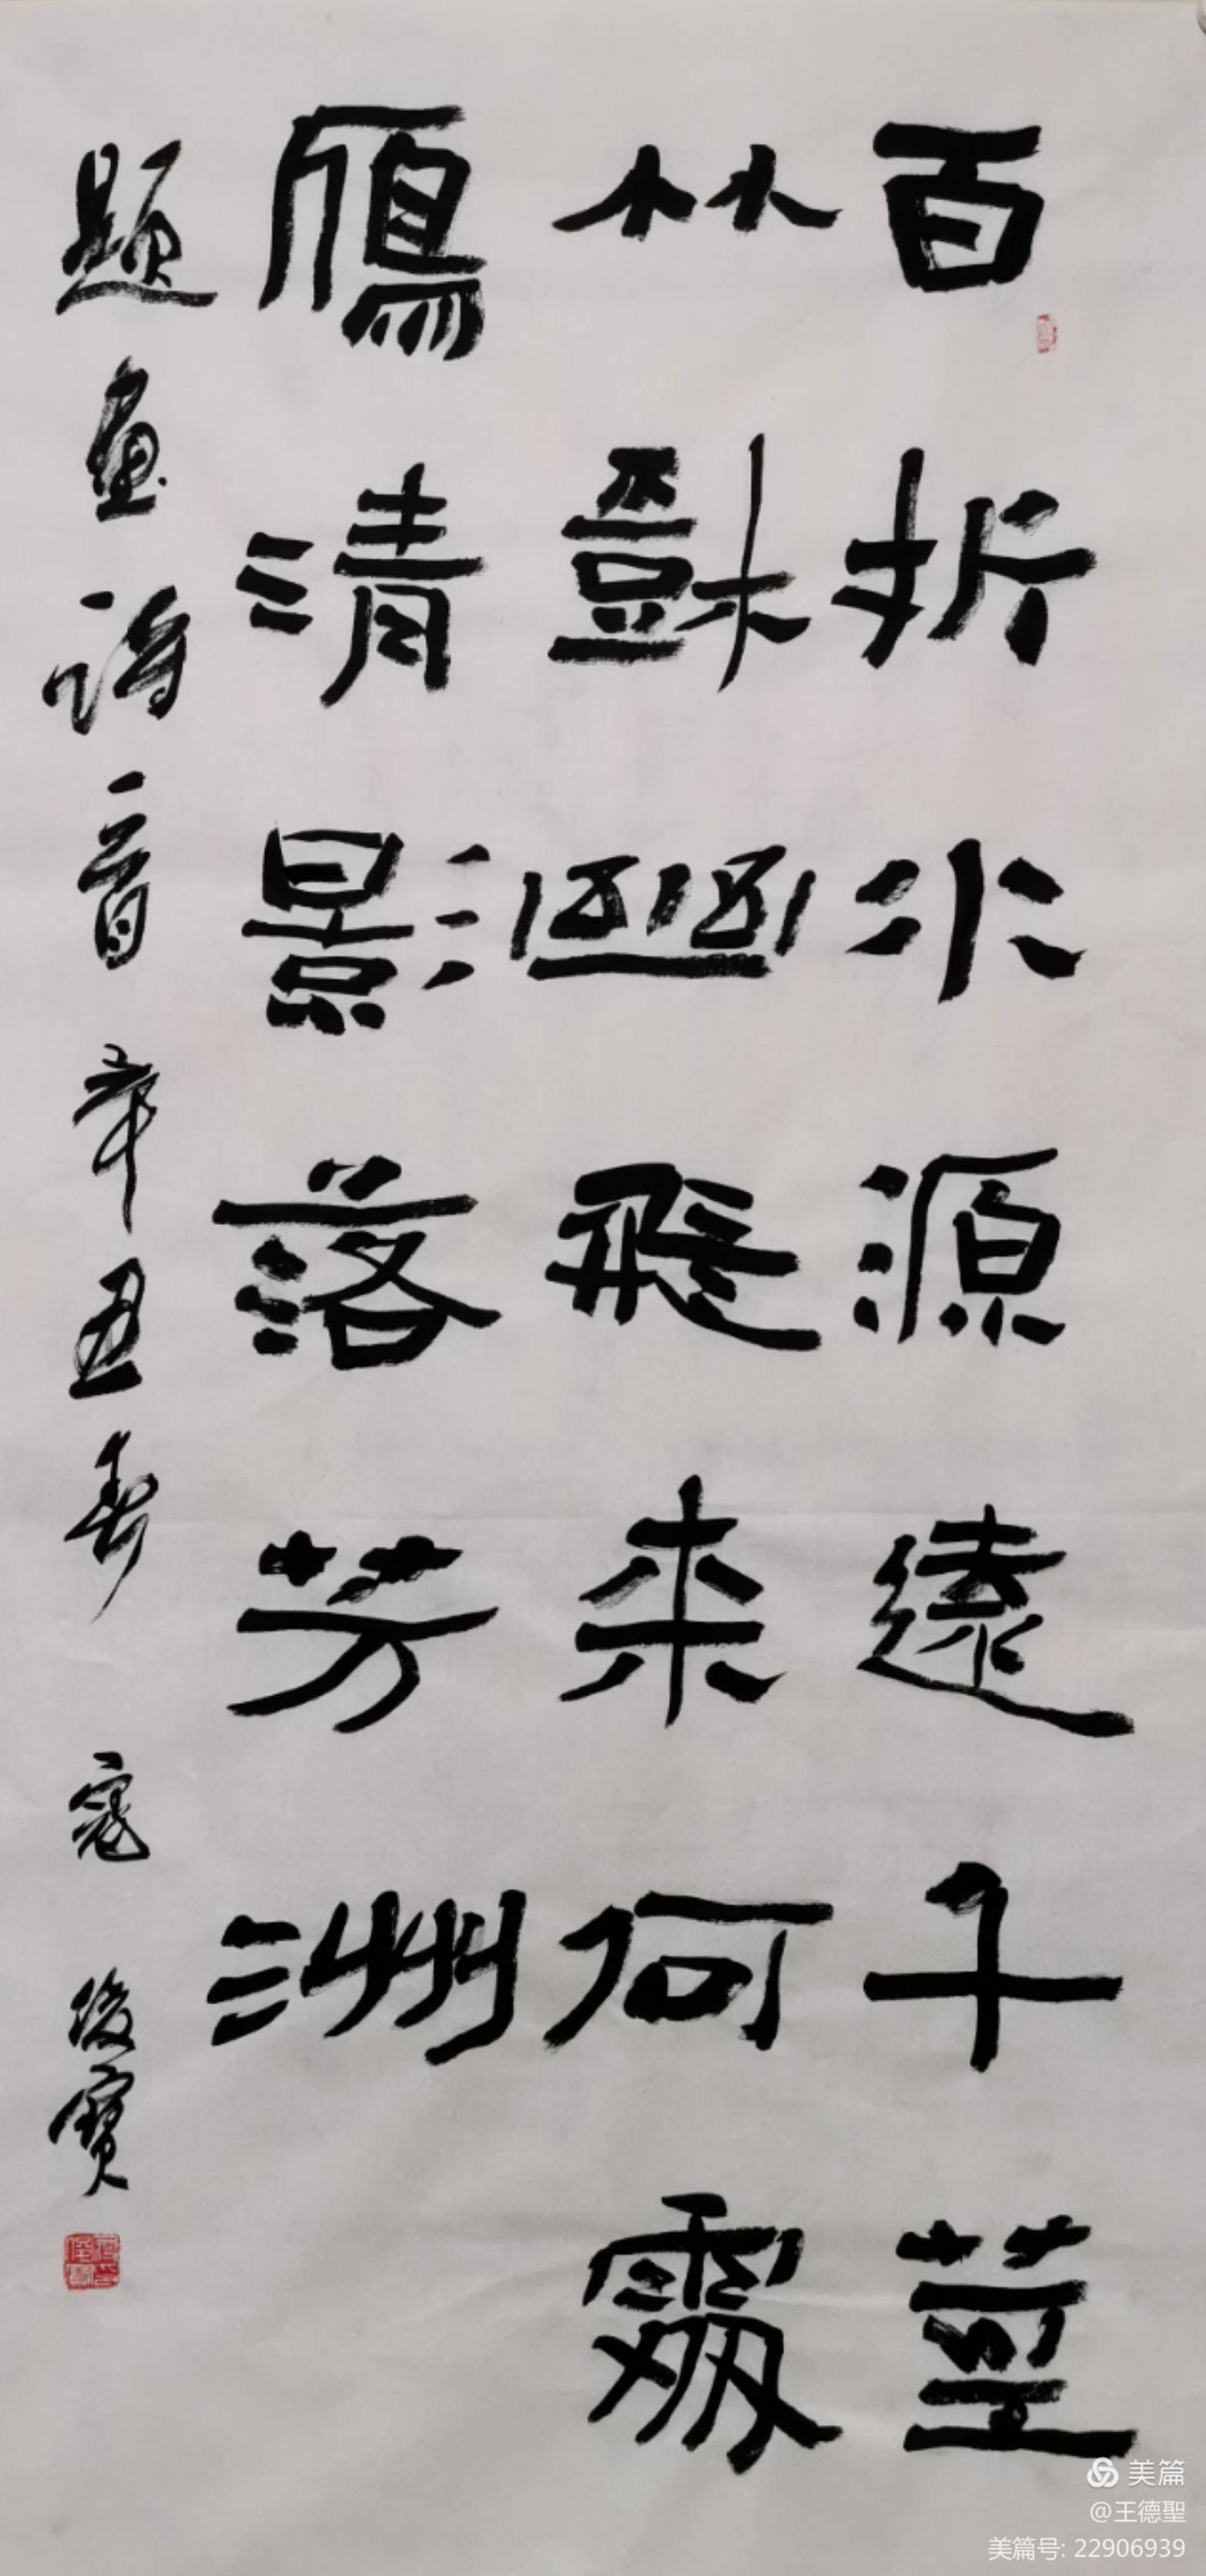 百折水源遠千莖
竹幽飛来何處
鴈清影落芳洲
題画詩一首辛丑春 寇俊寶
美篇
@王德聖
美篇号: 22906939